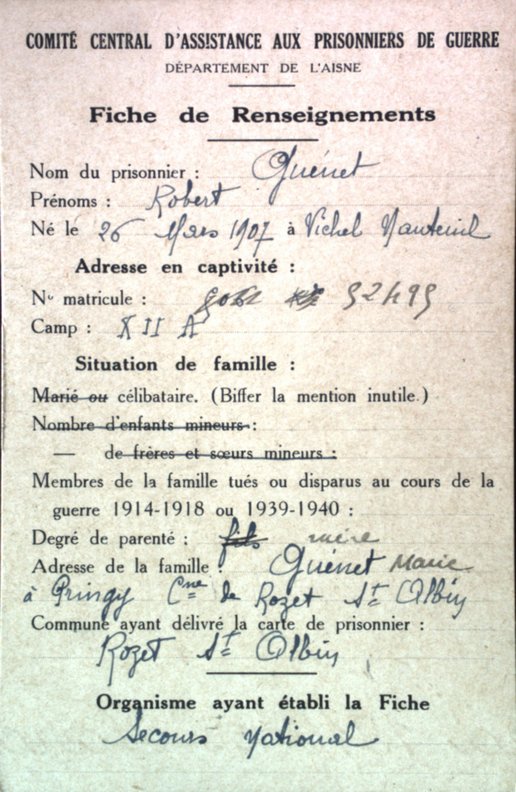 COMITÉ CENTRAL D'ASSISTANCE AUX PRISONNIERS DE GUERRE
DÉPARTEMENT DE L'AISNE
Fiche de Renseignements
Nom du prisonnier : Guénet
Prénoms : Robert
Né le 26 Mars 1907 à Vichel Nanteuil
Adresse en captivité :
No matricule : 92499
Camp : XII A
Situation de famille :
Marié ou célibataire. (Biffer la mention inutile.)
Nombre d'enfants mineurs :
— de frères et sœurs mineurs :
Membres de la famille tués ou disparus au cours de la
guerre 1914-1918 ou 1939-1940 :
Degré de parenté : fils mère
Adresse de la famille : Guénet Marie
à Pringy Cne de Rozet St Albin
Commune ayant délivré la carte de prisonnier :
Rozet St Albin
Organisme ayant établi la Fiche
Secours National